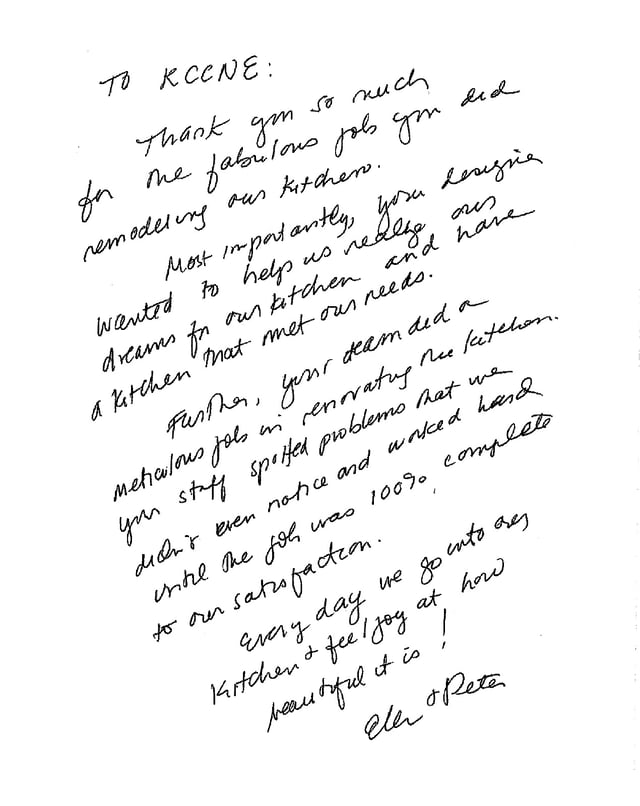 TO KCCNE:
Thank you so much
for the fabulous job you did
remodeling our kitchen.
Most importantly, your designer
wanted to help us realize our
dreams for our kitchen and have
a kitchen that met our needs.
Further, your team did a
meticulous job in renovating the kitchen.
your staff spotted problems that we
didn't even notice and worked hard
until the job was 100% complete
to our satisfaction.
Every day we go into our
kitchen & feel joy at how
beautiful it is!
& Peter